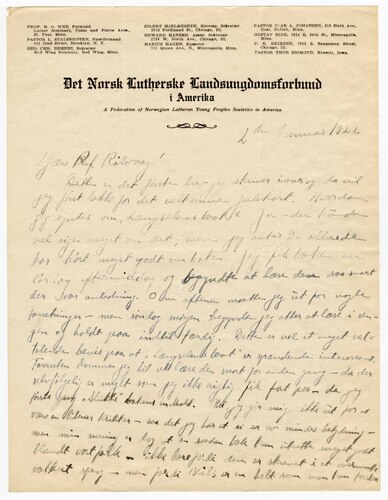 PROF. M. O. WEE, Formand
Luther Seminary, Como and Pierce Aves.,
St. Paul, Minn.
PASTOR L. STALHROTEN, Næstformand
Brooklyn, N. Y.
GEO. CHR. BRENNI, Sekretær
Red Wing Seminary, Red Wing, Minn.
EILERT HJELMSETH, Korresp. Sekretær
Ferdinand St., Chicago, Ill.
EDWARD HANSEN, Assist. Sekretær
W. North Ave., Chicago, Ill.
MARIUS HAGEN, Kasserer
111 Queen Ave., N., Minneapolis, Minn.
JOHANSEN,
East, Duluth, Minn.
GUSTAV EIDE,
So., Minneapolis, Minn.
F. H. ERICKSEN, Sangamon Street,
Chicago, Ill.
PASTOR THOR SIGMOND, Kensett, Iowa
Det Norsk Lutherske Landsungdomsforbund
i Amerika
A Federation of Norwegian Lutheran Young Peoples Societies in America
2den Januar 1922
Kjære Prof. Rölvaag!
Dette er det første brev jeg skriver iaar og da vil
jeg først takke for det velkomne julekort. Hvordan
jeg syntes om "Længselens Baat"? Ja – der kunde
vel siges meget om det, men jeg antar De allerede
har hørt meget godt om boken. Jeg fik boken en
lørdag eftermiddag og begyndte at læse den saa snart
der var anledning. Om aftenen maatte jeg ut for nogle
forretninger – men søndag morgen begyndte jeg atter at læse i sen-
gen og holdt paa indtil færdig. Dette er vel et meget vel-
talende bevis paa at "Længselens Baat" er grænseløs interessant.
Forresten kommer jeg til at læse den snart for anden gang – da der
er meget som jeg ikke rigtig fik fat paa – da jeg
første gang "slukte" bokens indhold. Nu jeg for mig ikke ut for at
være en litterær kritiker – saa det jeg har at si er av mindre betydning –
men min mening er dog at en saadan bok kan utrette meget godt
blandt vort folk – ikke fordi den er skrevet i et
sprog – men fordi Nils er en helt som man kan